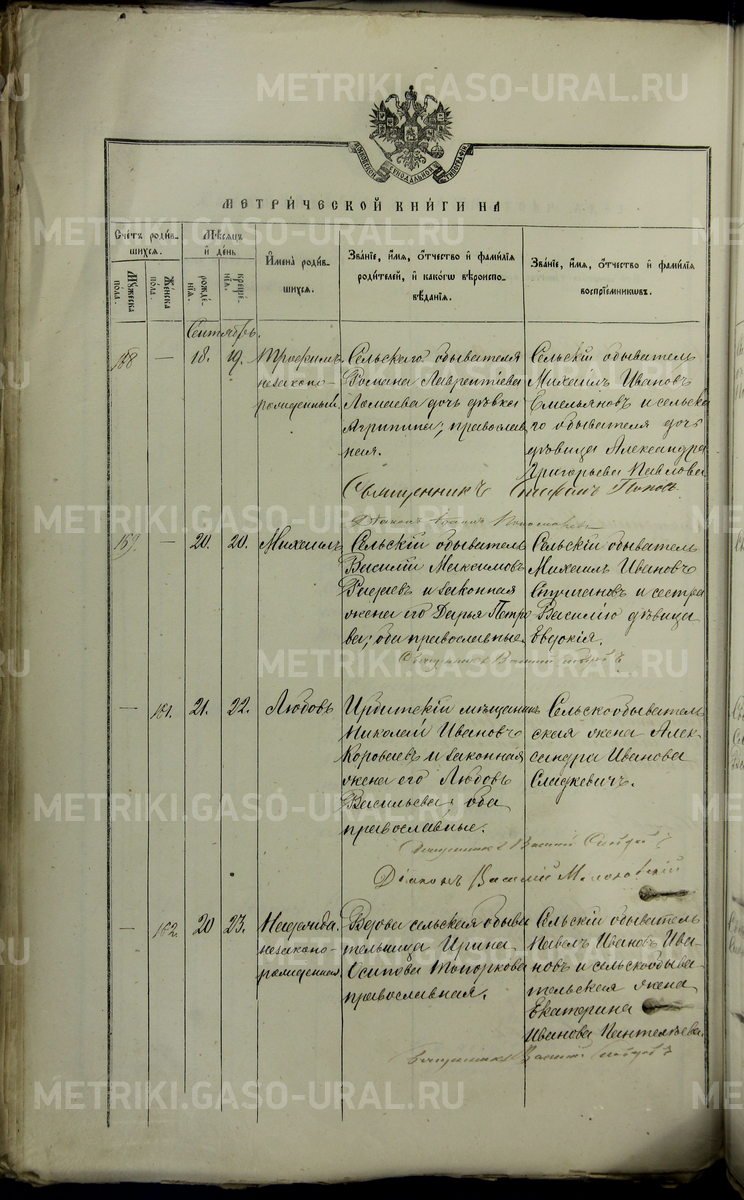 METRIKI.GASO-URAL.RU
МЕТРИ́ЧЕСКОЙ КНИ́ГИ НА
Сче́тъ роди́в-
шихся.
Му́жеска
пола.
Же́нска
пола.
Мѣ́сяцъ
и҆ де́нь
рожде́-
нїѧ.
креще́-
нїѧ.
И҆мена̀ роди́в-
шихся.
Зва́нїе, и҆́мѧ, ѻ҆́тчество и҆ фами́лїѧ
роди́телей, и҆ како́гѡ вѣроиспо-
вѣ́данїѧ.
Зва́нїе, и҆́мѧ, ѻ҆́тчество и҆ фами́лїѧ
воспрїе́мниковъ.
Сентябрь.
158 — 18. 19.
Трофимъ
незаконо-
рожденный.
Сельскаго обывателя
Романа Лаврентіева
дочь дѣвка
Агрипина; православ
ная.
Сельскій обыватель
Михаилъ Ивановъ
Емельяновъ и сельска
го обывателя дочь
дѣвица Александра
Григорьева Павлова
Священникъ Стефанъ Поповъ
Діаконъ Іоаннъ
159. — 20. 20.
Михаилъ
Сельскій обыватель
Василій Максимовъ
и законная
жена его Дарья Петро
ва; оба православные.
Сельскій обыватель
Михаилъ Ивановъ
и сестра
Василію дѣвица
Евдокія.
Священникъ Василій
— 161. 21. 22.
Любовь
Ирбитскій мѣщанинъ
Николай Ивановъ
Короваевъ и законная
жена его Любовь
Васильева; оба
православные.
Сельскообыватель
ская жена Алек-
сандра Иванова
Сладкевичъ.
Священникъ Василій
Діаконъ Василій
— 162. 20 23.
Надежда
незаконо-
рожденная.
Вдова сельская обыва
тельница Ирина
Осипова Топоркова
православная.
Сельскій обыватель
Павелъ Ивановъ Ива
новъ и сельскообыва
тельская жена
Екатерина
Иванова Пантелѣева.
Священникъ Василій